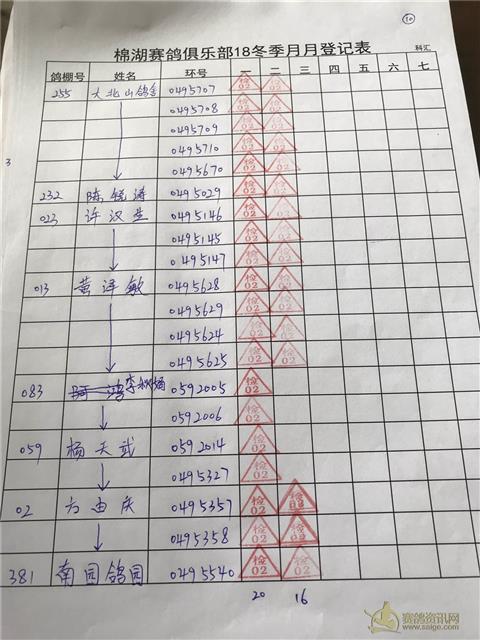 10
棉湖赛鸽俱乐部18冬季月月登记表
鸽棚号 姓名 环号 一 二 三 四 五 六 科汇 七
255 大北山鸽舍 0495707 检02 检02
0495708 检02 检02
0495709 检02 检02
0495710 检02 检02
3
0495670 检02 检02
232 陈锐涛 0495029 检02 检02
023 许汉生 0495146 检02 检02
0495145 检02 检02
0495147 检02 检02
013 黄泽敏 0495628 检02 检02
0495629 检02 检02
0495624 检02 检02
0495625 检02 检02
083 0592005 检02
0592006 检02
059 杨天武 0592014 检02
0495327 检02
02 方由庆 0495357 检02 检02
0495358 检02 检02
381 南园鸽园 0495540 检02 检02
20 16
赛鸽资讯网
www.saige.com